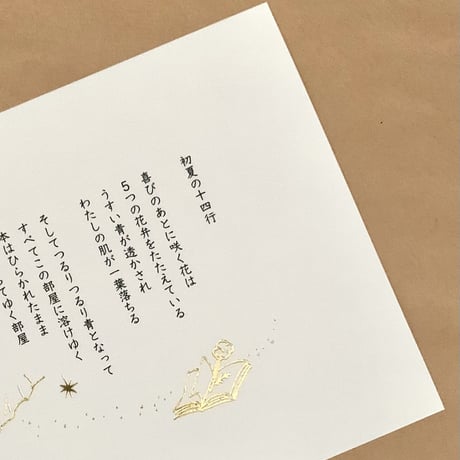 初夏の十四行
喜びのあとに咲く花は
5つの花弁をたたえている
うすい青が透かされ
わたしの肌が一葉落ちる
そしてつるりつるり青となって
すべてこの部屋に溶けゆく
本はひらかれたまま
ってゆく部屋